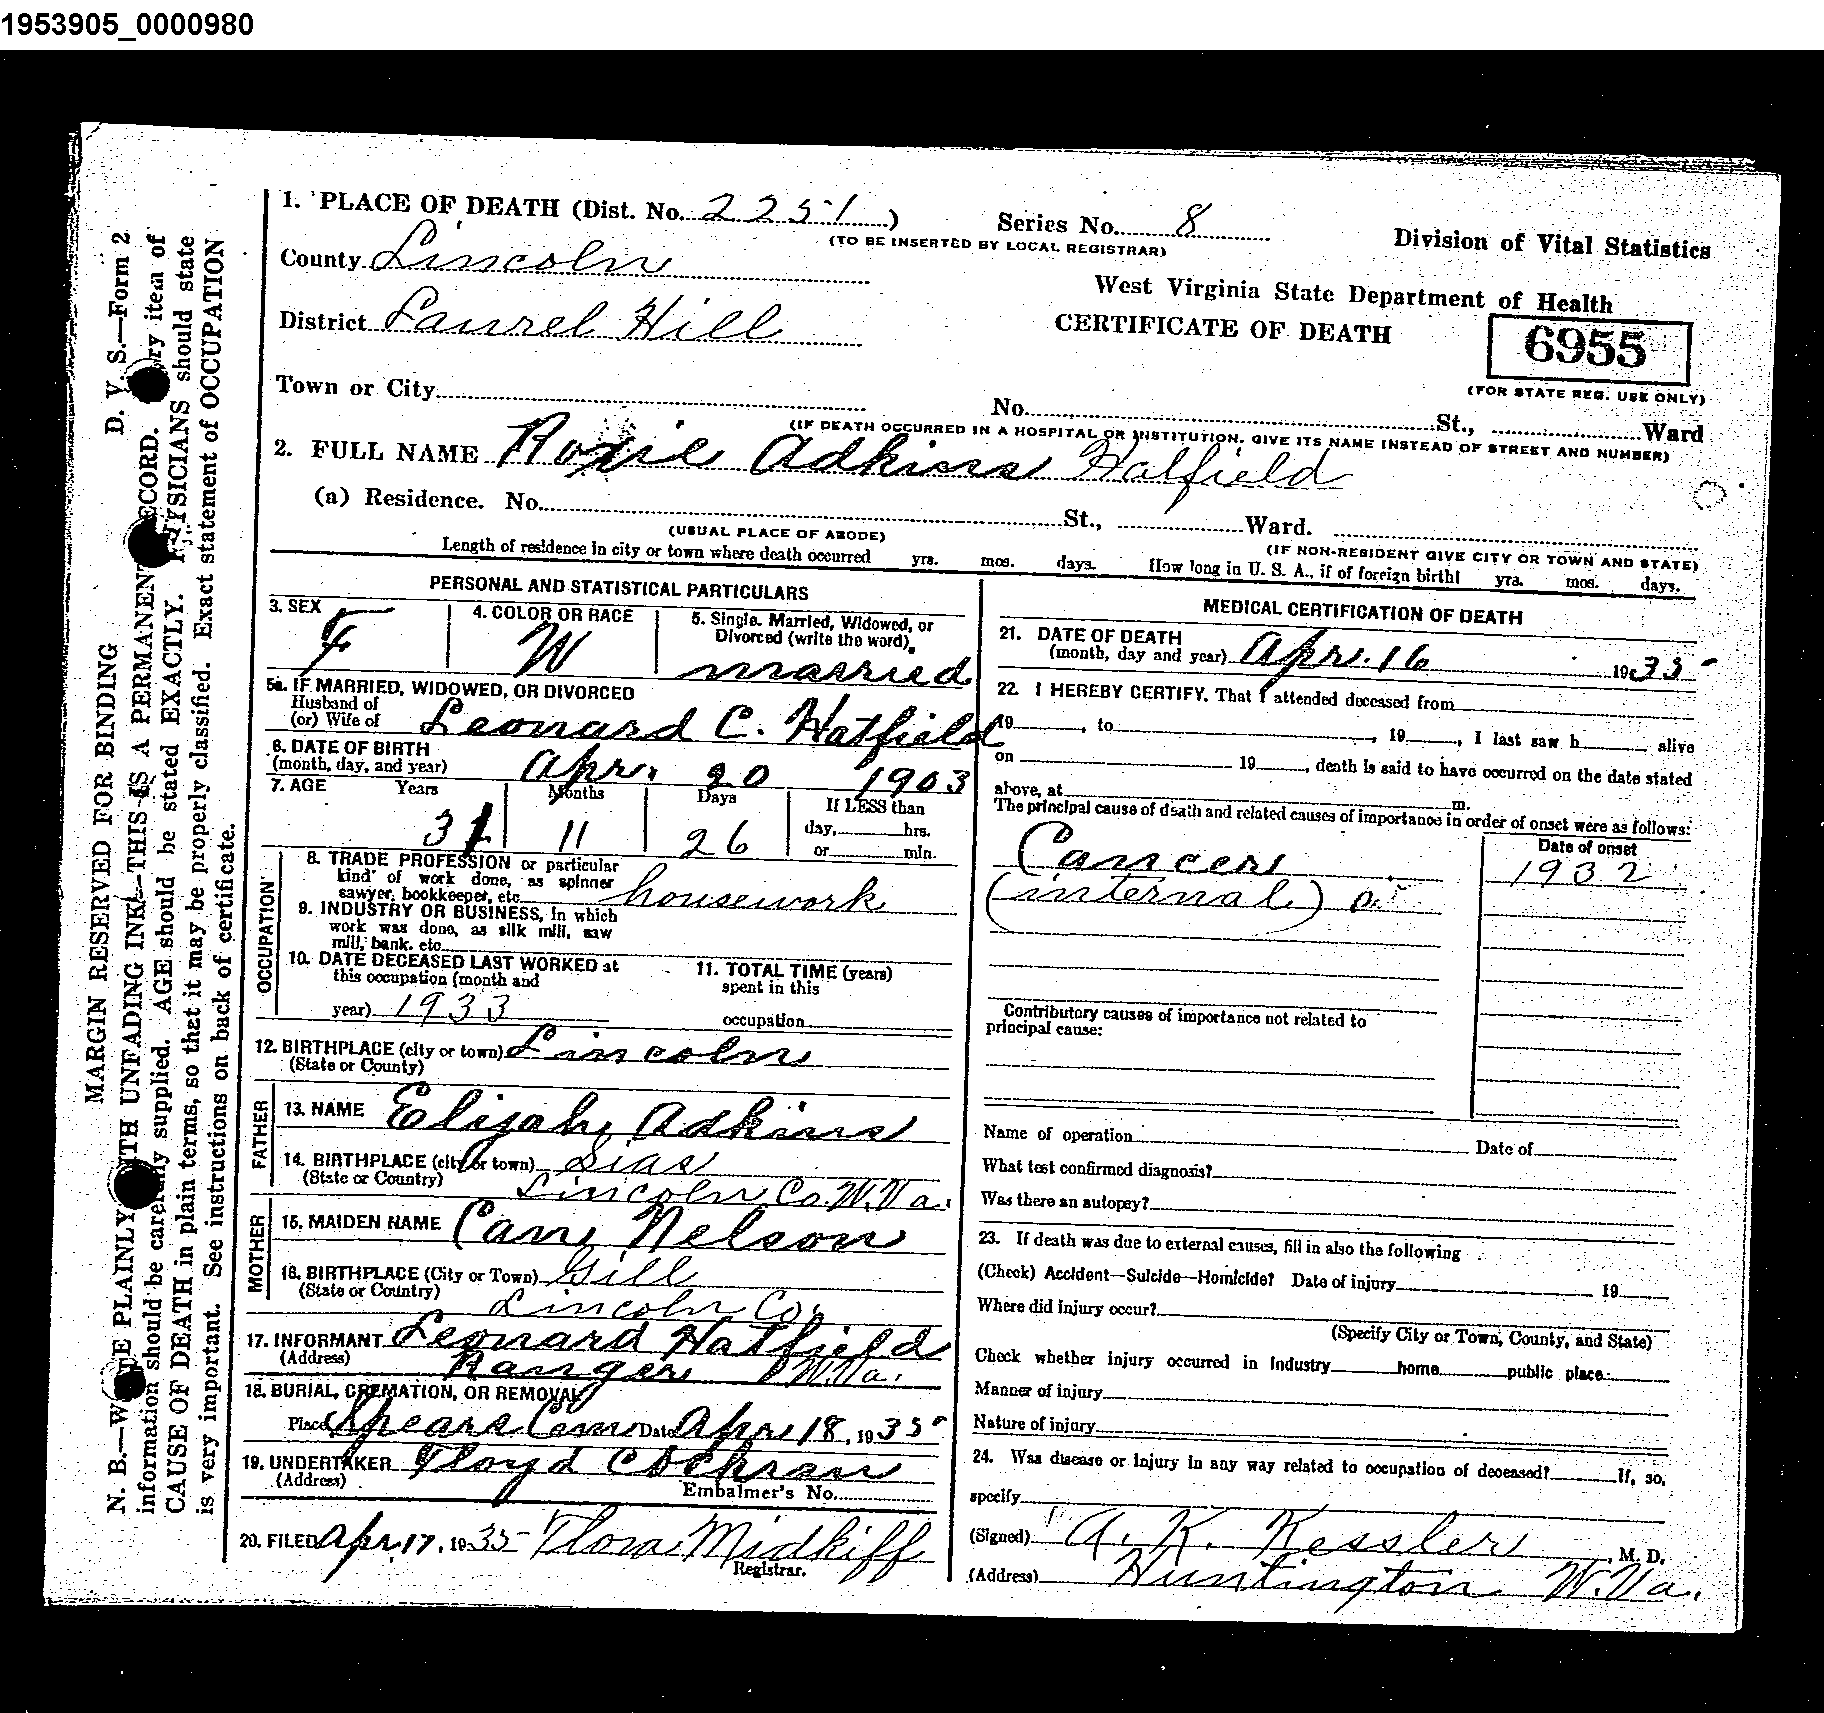 1953905_0000980
1. PLACE OF DEATH (Dist. No. 2251)
Series No. 8
(TO BE INSERTED BY LOCAL REGISTRAR)
Division of Vital Statistics
County Lincoln
West Virginia State Department of Health
District Laurel Hill
CERTIFICATE OF DEATH
6955
(FOR STATE REG. USE ONLY)
Town or City
No. St., Ward
(IF DEATH OCCURRED IN A HOSPITAL OR INSTITUTION, GIVE ITS NAME INSTEAD OF STREET AND NUMBER)
2. FULL NAME Roxie Adkins Hatfield
(a) Residence. No. St., Ward.
(USUAL PLACE OF ABODE)
(IF NON-RESIDENT GIVE CITY OR TOWN AND STATE)
Length of residence in city or town where death occurred yrs. mos. days. How long in U. S. A., if of foreign birth! yrs. mos. days.
PERSONAL AND STATISTICAL PARTICULARS
3. SEX
F
4. COLOR OR RACE
W
5. Single. Married, Widowed, or
Divorced (write the word).
married
5a. IF MARRIED, WIDOWED, OR DIVORCED
Husband of
(or) Wife of Leonard C. Hatfield
6. DATE OF BIRTH
(month, day, and year) Apr. 20 1903
7. AGE Years Months Days If LESS than
31 11 26 day, hrs.
or min.
OCCUPATION
8. TRADE PROFESSION or particular
kind of work done, as spinner
sawyer, bookkeeper, etc. housework
9. INDUSTRY OR BUSINESS, in which
work was done, as silk mill, saw
mill, bank, etc.
10. DATE DECEASED LAST WORKED at
this occupation (month and
year) 1933
11. TOTAL TIME (years)
spent in this
occupation
12. BIRTHPLACE (city or town) Lincoln
(State or County)
FATHER
13. NAME Elijah Adkins
14. BIRTHPLACE (city or town) Sias
(State or Country) Lincoln Co. W. Va.
MOTHER
15. MAIDEN NAME Can Nelson
16. BIRTHPLACE (City or Town) Gill
(State or Country) Lincoln Co.
17. INFORMANT Leonard Hatfield
(Address) Ranger W. Va.
18. BURIAL, CREMATION, OR REMOVAL
Place Spears Cem Date Apr. 18, 1935
19. UNDERTAKER Floyd Cochran
(Address)
Embalmer's No.
20. FILED Apr. 17, 1935 Flora Midkiff
Registrar.
MEDICAL CERTIFICATION OF DEATH
21. DATE OF DEATH
(month, day and year) Apr. 16 1935
22. I HEREBY CERTIFY, That I attended deceased from
19 , to , 19 , I last saw h alive
on 19 , death is said to have occurred on the date stated
above, at m.
The principal cause of death and related causes of importance in order of onset were as follows:
Date of onset
Cancer 1932
(internal)
Contributory causes of importance not related to
principal cause:
Name of operation Date of
What test confirmed diagnosis?
Was there an autopsy?
23. If death was due to external causes, fill in also the following
(Check) Accident—Suicide—Homicide? Date of injury 19
Where did injury occur?
(Specify City or Town, County, and State)
Check whether injury occurred in Industry home public place:
Manner of injury
Nature of injury
24. Was disease or injury in any way related to occupation of deceased? If, so,
specify
(Signed) A. K. Kessler, M. D.
(Address) Huntington W. Va.
MARGIN RESERVED FOR BINDING D. V. S.—Form 2
N. B.—W TE PLAINLY ITH UNFADING INK—THIS IS A PERMANEN ECORD. ry item of
information should be carefully supplied. AGE should be stated EXACTLY. PHYSICIANS should state
CAUSE OF DEATH in plain terms, so that it may be properly classified. Exact statement of OCCUPATION
is very important. See instructions on back of certificate.